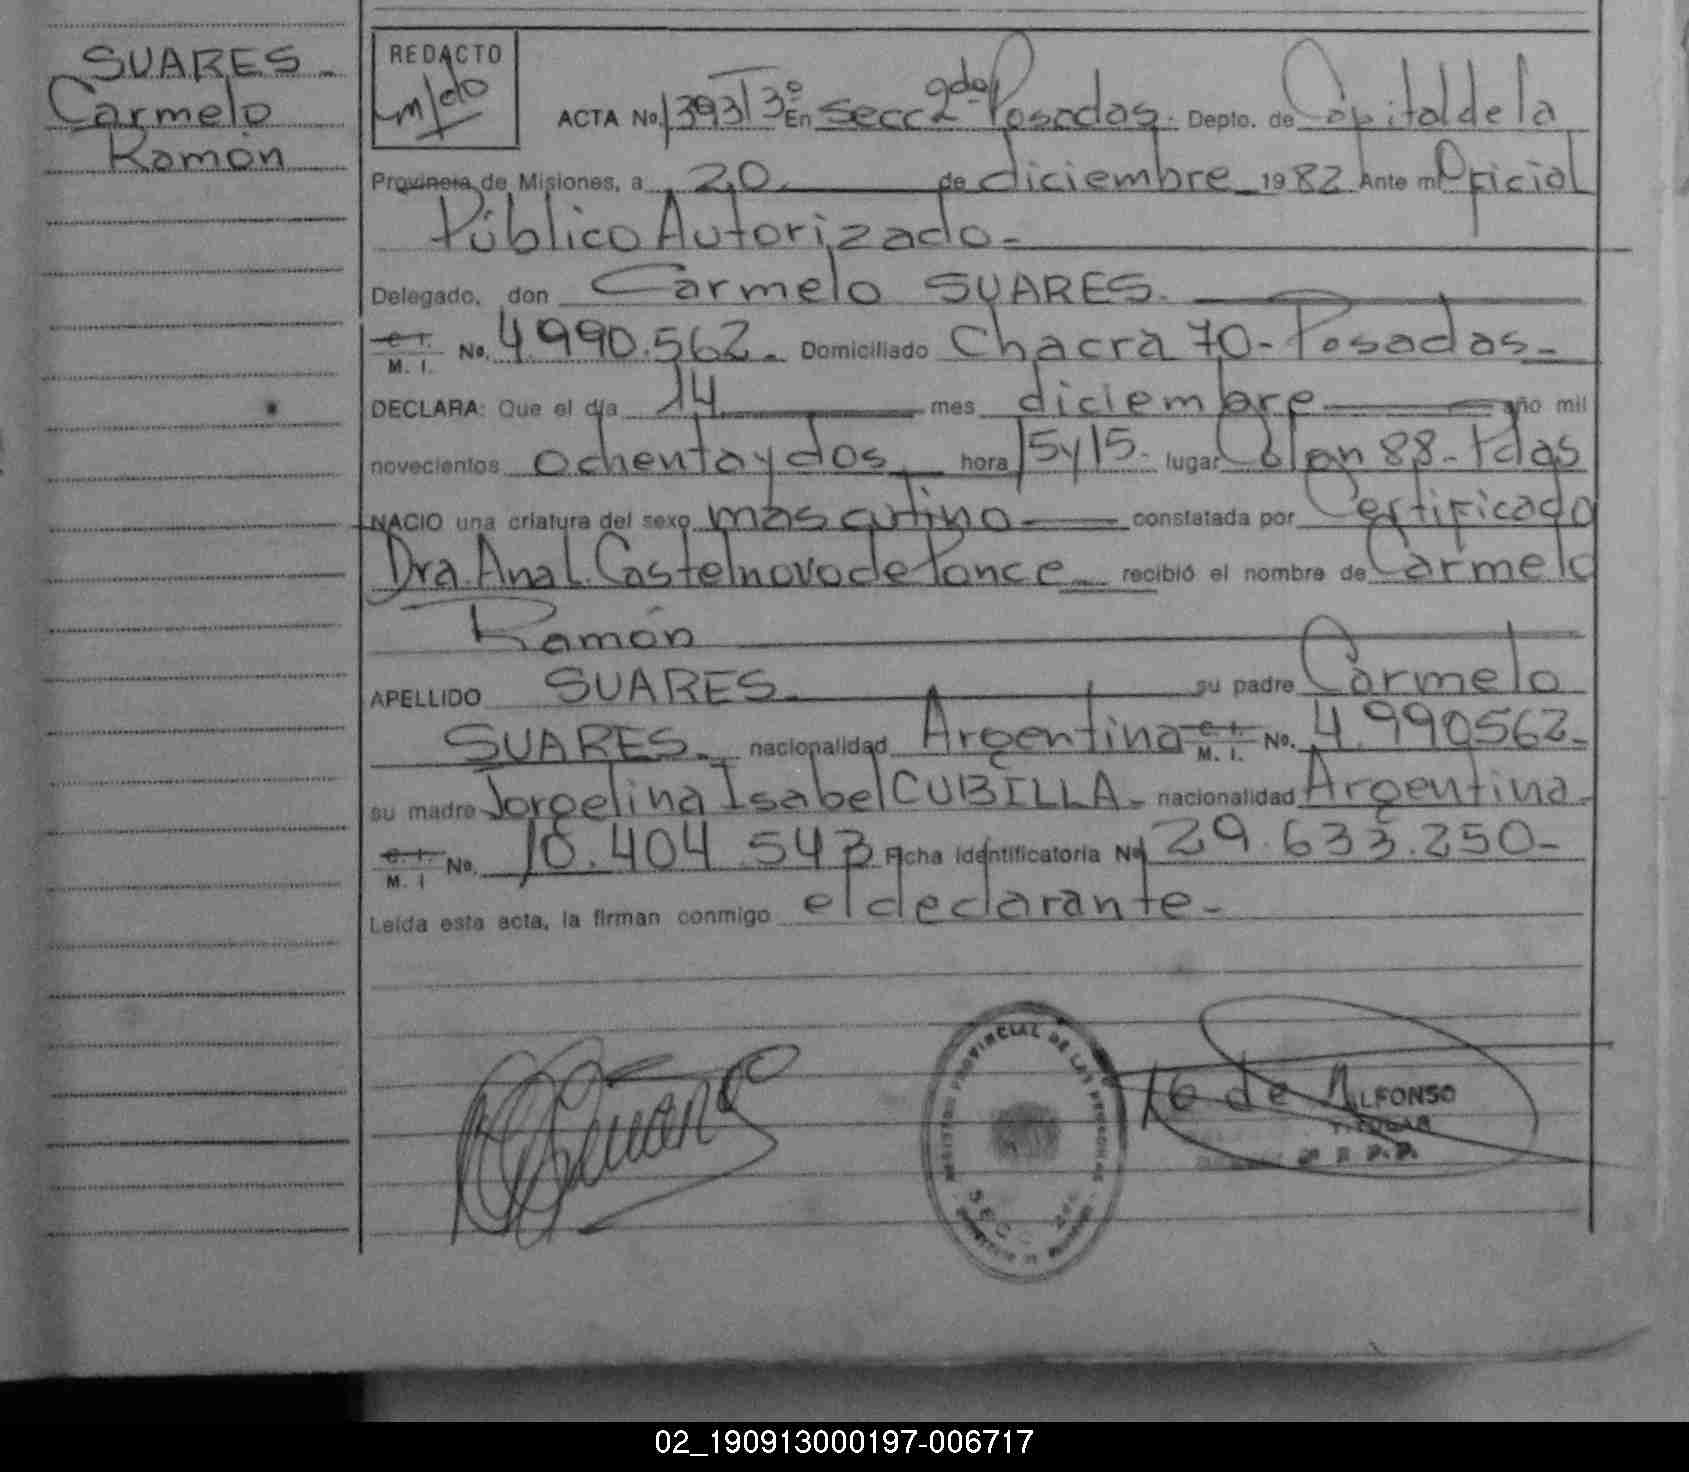 SUARES
Carmelo
Ramón
REDACTO
ACTA No. 1393 T 3º En Secc 2da Posadas. Depto. de Capital de la
Provincia de Misiones, a 20 de diciembre 1982 Ante mí Oficial
Público Autorizado
Delegado, don Carmelo SUARES.
C. I. M. I. No. 4.990.562. Domiciliado Chacra 70 - Posadas
DECLARA: Que el día 14 mes diciembre año mil
novecientos ochenta y dos hora 15 y 15. lugar Colon 88 - Pdas
NACIO una criatura del sexo masculino constatada por Certificado
Dra. Ana L. Castelnovo de Ponce recibió el nombre de Carmelo
Ramón
APELLIDO SUARES su padre Carmelo
SUARES nacionalidad Argentina C. I. M. I. No. 4.990562
su madre Jorgelina Isabel CUBILLA nacionalidad Argentina
C. I. M. I No. 10.404.543 Ficha identificatoria No 29.633.250
Leída esta acta, la firman conmigo el declarante
REGISTRO PROVINCIAL DE LAS PERSONAS
SECC
16 de ALFONSO
TITULAR
02_190913000197-006717